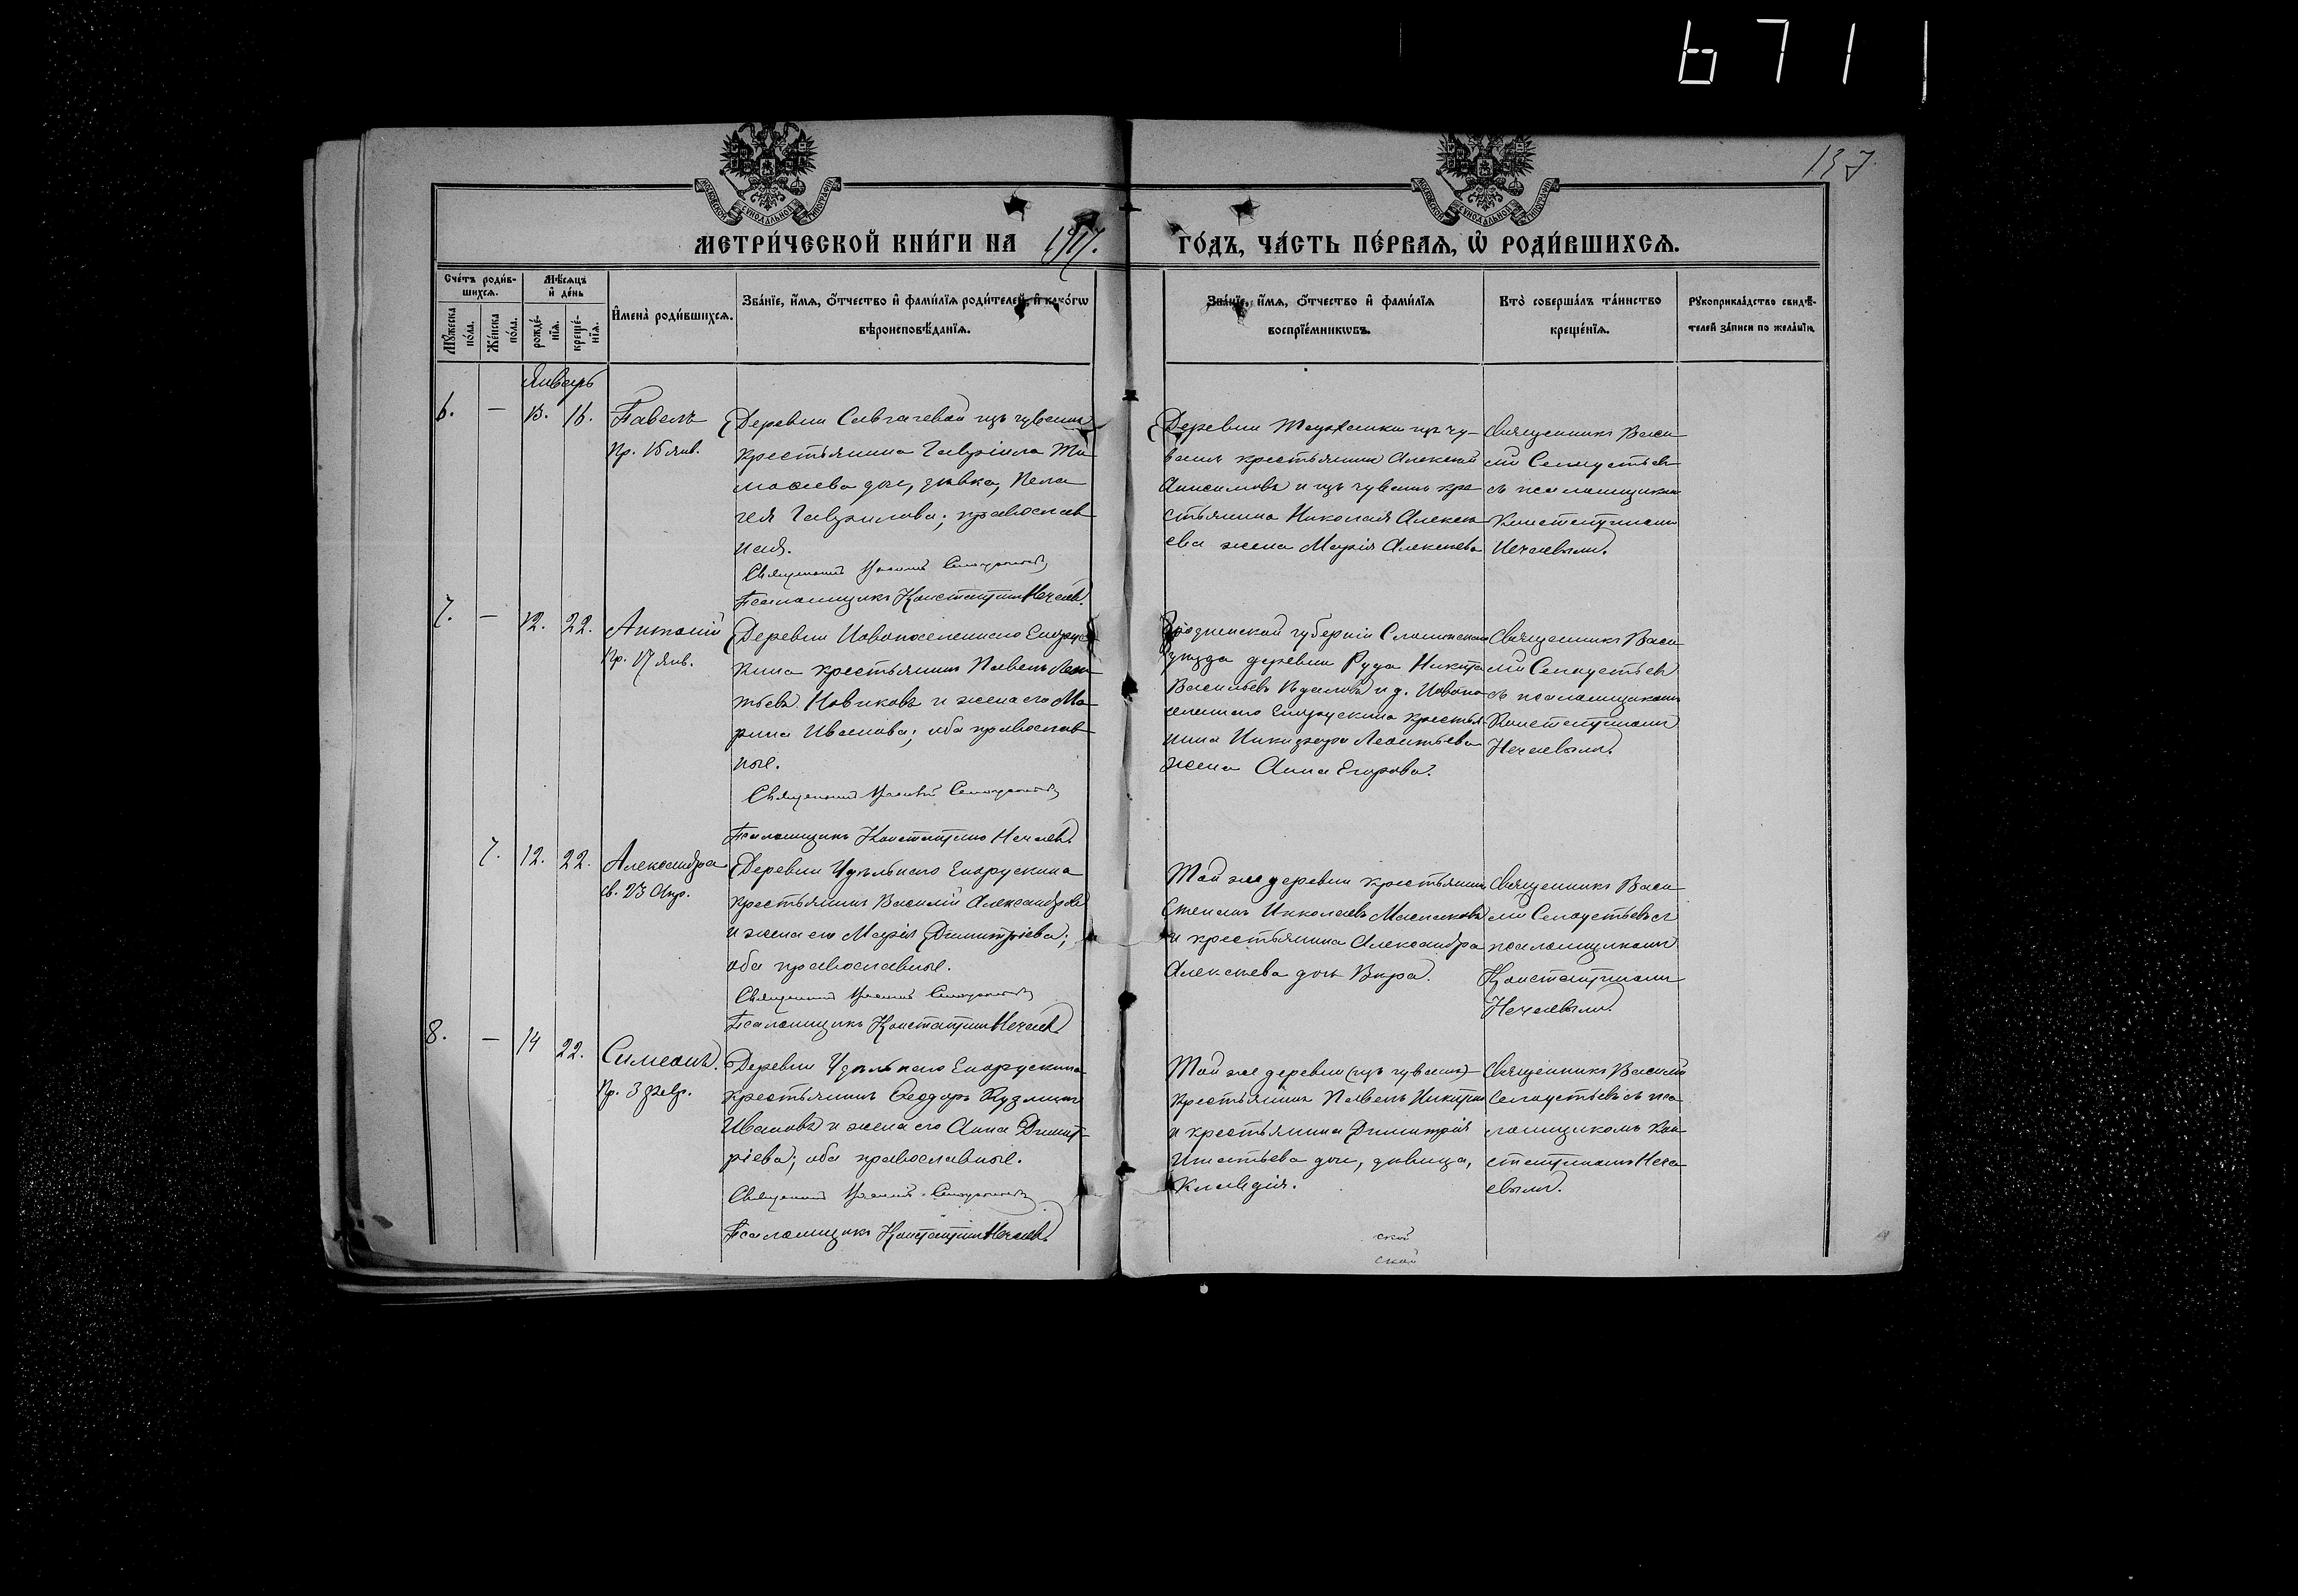 6711
137.
МЕТРИ́ЧЕСКОЙ КНИ́ГИ НА 1917. ГО́ДЪ, ЧА́СТЬ ПЕ́РВАЯ, Ѿ РОДИ́ВШИХСЯ.
Сче́тъ роди́вшихся.
Му́жеска по́ла.
Же́нска по́ла.
Мѣ́сяцъ и́ де́нь
рожде́нїя.
креще́нїя.
И҆мена̀ роди́вшихся.
Зва́нїе, и҆́мя, о҆́тчество и҆ фами́лїя роди́телей, и҆ како́гѡ
вѣроисповѣ́данїя.
Зва́нїе, и҆́мя, о҆́тчество и҆ фами́лїя
воспрїе́мникѡвъ.
Кто̀ соверша́лъ та́инство
креще́нїя.
Рꙋкоприкла́дство свидѣ́-
телей за́писи по жела́нїю.
Январь
6. — 13. 16. Павелъ
Пр. 15 янв.
Деревни Савгачевой изъ чувашъ
крестьянина Гавріила Ти
моѳеева дочь, дѣвка, Пела
гея Гаврилова; православ
ная.
Священникъ
Псаломщикъ Константинъ Нечаевъ.
Деревни изъ чу-
вашъ крестьянинъ Алексѣй
Анисимовъ и изъ чувашъ кре
стьянина Николая Алексѣ
ева жена Марія Алексѣева
Священникъ Васи
лій
съ псаломщикомъ
Константиномъ
Нечаевымъ.
7. — 12. 22. Антоній
Пр. 17 янв.
Деревни Новопоселеннаго Енорус
кина крестьянинъ Павелъ Леон
тьевъ Новиковъ и жена его Ма
рина Иванова; оба православ
ные.
Священникъ
Псаломщикъ Константинъ Нечаевъ.
Гродненской губерніи Слонимскаго
уѣзда деревни Руда Никита
Васильевъ и д. Новопо
селеннаго Енорускина крестья
нина Никифора Леонтьева
жена Анна Егорова.
Священникъ Васи
лій
съ псаломщикомъ
Константиномъ
Нечаевымъ.
7. 12. 22. Александра
св. 23 Апр.
Деревни Удѣльнаго Енорускина
крестьянинъ Василій Александровъ
и жена его Марія Димитріева;
оба православные.
Священникъ
Псаломщикъ Константинъ Нечаевъ.
Той же деревни крестьянинъ
Степанъ Николаевъ Маслаковъ
и крестьянина Александра
Алексѣева дочь Вѣра.
Священникъ Васи
лій съ
псаломщикомъ
Константиномъ
Нечаевымъ.
8. — 14 22. Симеонъ.
Пр. 3 февр.
Деревни Удѣльнаго Енорускина
крестьянинъ Ѳеодоръ Кузминъ
Ивановъ и жена его Анна Димит-
ріева; оба православные.
Священникъ
Псаломщикъ Константинъ Нечаевъ.
Той же деревни (изъ чувашъ)
крестьянинъ Павелъ Никитинъ
и крестьянина Димитрія
Игнатьева дочь, дѣвица,
Клавдія.
Священникъ Василій
съ пса
ломщикомъ Кон
стантиномъ Неча
евымъ.
ской
ской